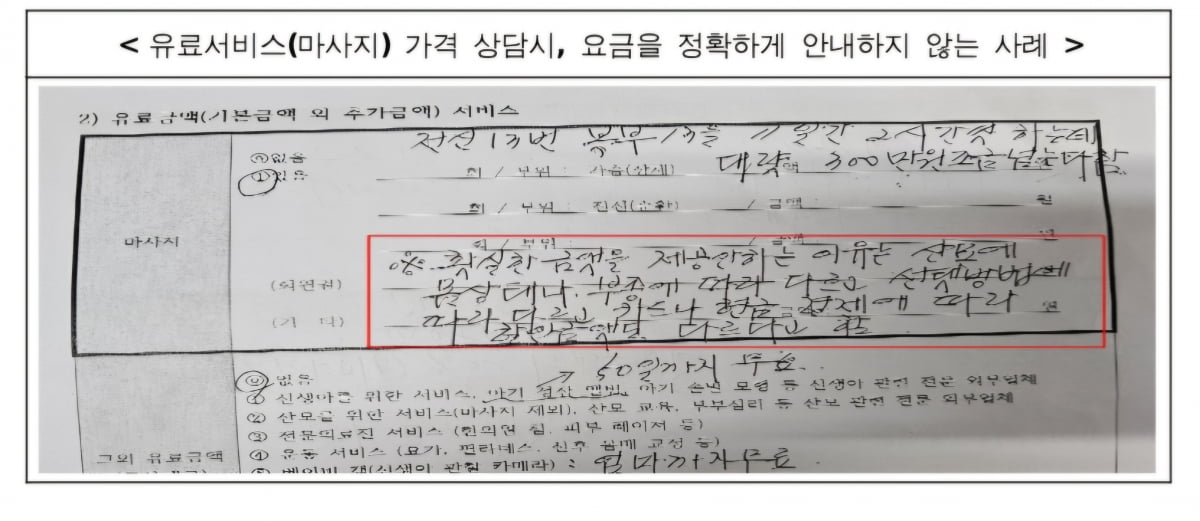 < 유료서비스(마사지) 가격 상담시, 요금을 정확하게 안내하지 않는 사례 >
2) 유료금액(기본금액 외 추가금액) 서비스
전신 13번 복부 13을 11일간 2시간씩 하는데
⓪없음
대략 300만원조금넘는다함
①있음 회 / 부위 : 가슴(산세) 액
회 / 부위 : 전신(순환) / 금액 : 원
마사지
회 / 부위 : / 금액 원
※ 확실한 금액을 제공안하는 이유는 산모에
(외관리) 몸상태나, 부종에 따라 다르고 선택방법에
따라 다르고 카드나 현금 결제에 따라
(기 타) 원
할인금액도 다르다고 함
→ 50일까지 무료.
⓪ 없음
① 신생아를 위한 서비스, 아기 성장 앨범, 아기 손발 모형 등 신생아 관련 전문 외부업체
② 산모를 위한 서비스(마사지 제외), 산모 교육, 부부심리 등 산모 관련 전문 외부업체
③ 전문의료진 서비스 (한의원 침, 피부 레이저 등)
그외 유료금액 ④ 운동 서비스 (요가, 필라테스, 산후 몸매 교정 등)
⑤ 베이비 캠(신생아 관찰 카메라) :